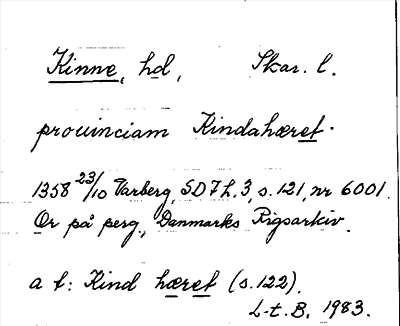 Kinne, hd, Skar. l.
prouinciam Kindahæret.
1358 23/10 Varberg, SD 7 h. 3, s. 121, nr 6001.
Or på perg., Danmarks Rigsarkiv.
a t: Kind hæret (s. 122).
L-t. B. 1983.